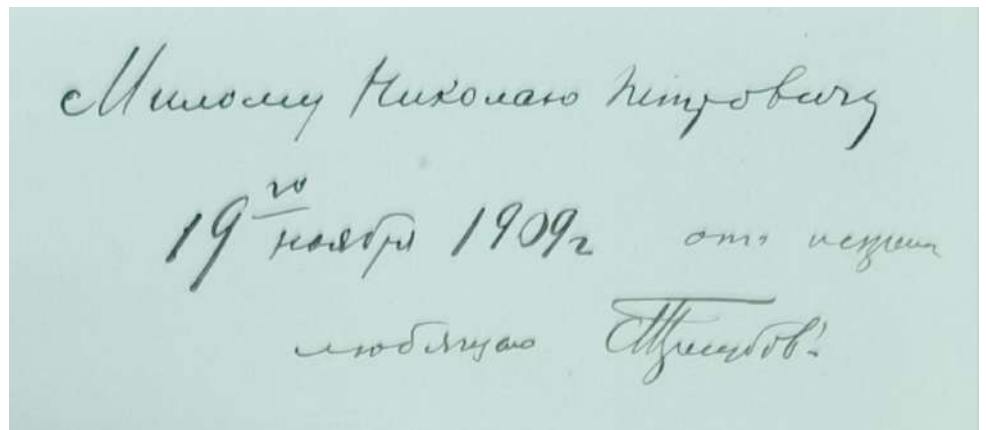 Милому Николаю Петровичу
19го ноября 1909г отъ искрен
любящаго